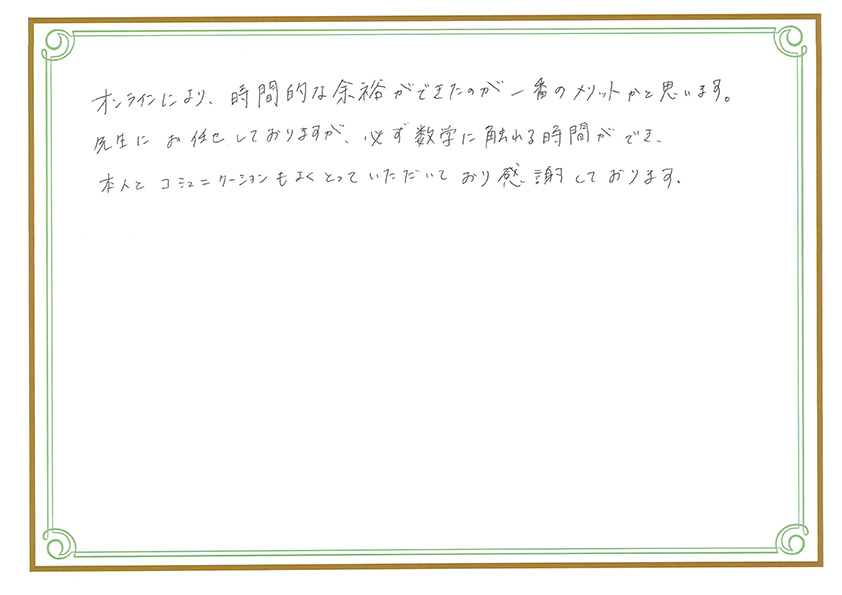 オンラインにより、時間的な余裕ができたのが一番のメリットかと思います。
先生にお任せしておりますが、必ず数学に触れる時間ができ、
本人とコミュニケーションもよくとっていただいており感謝しております。